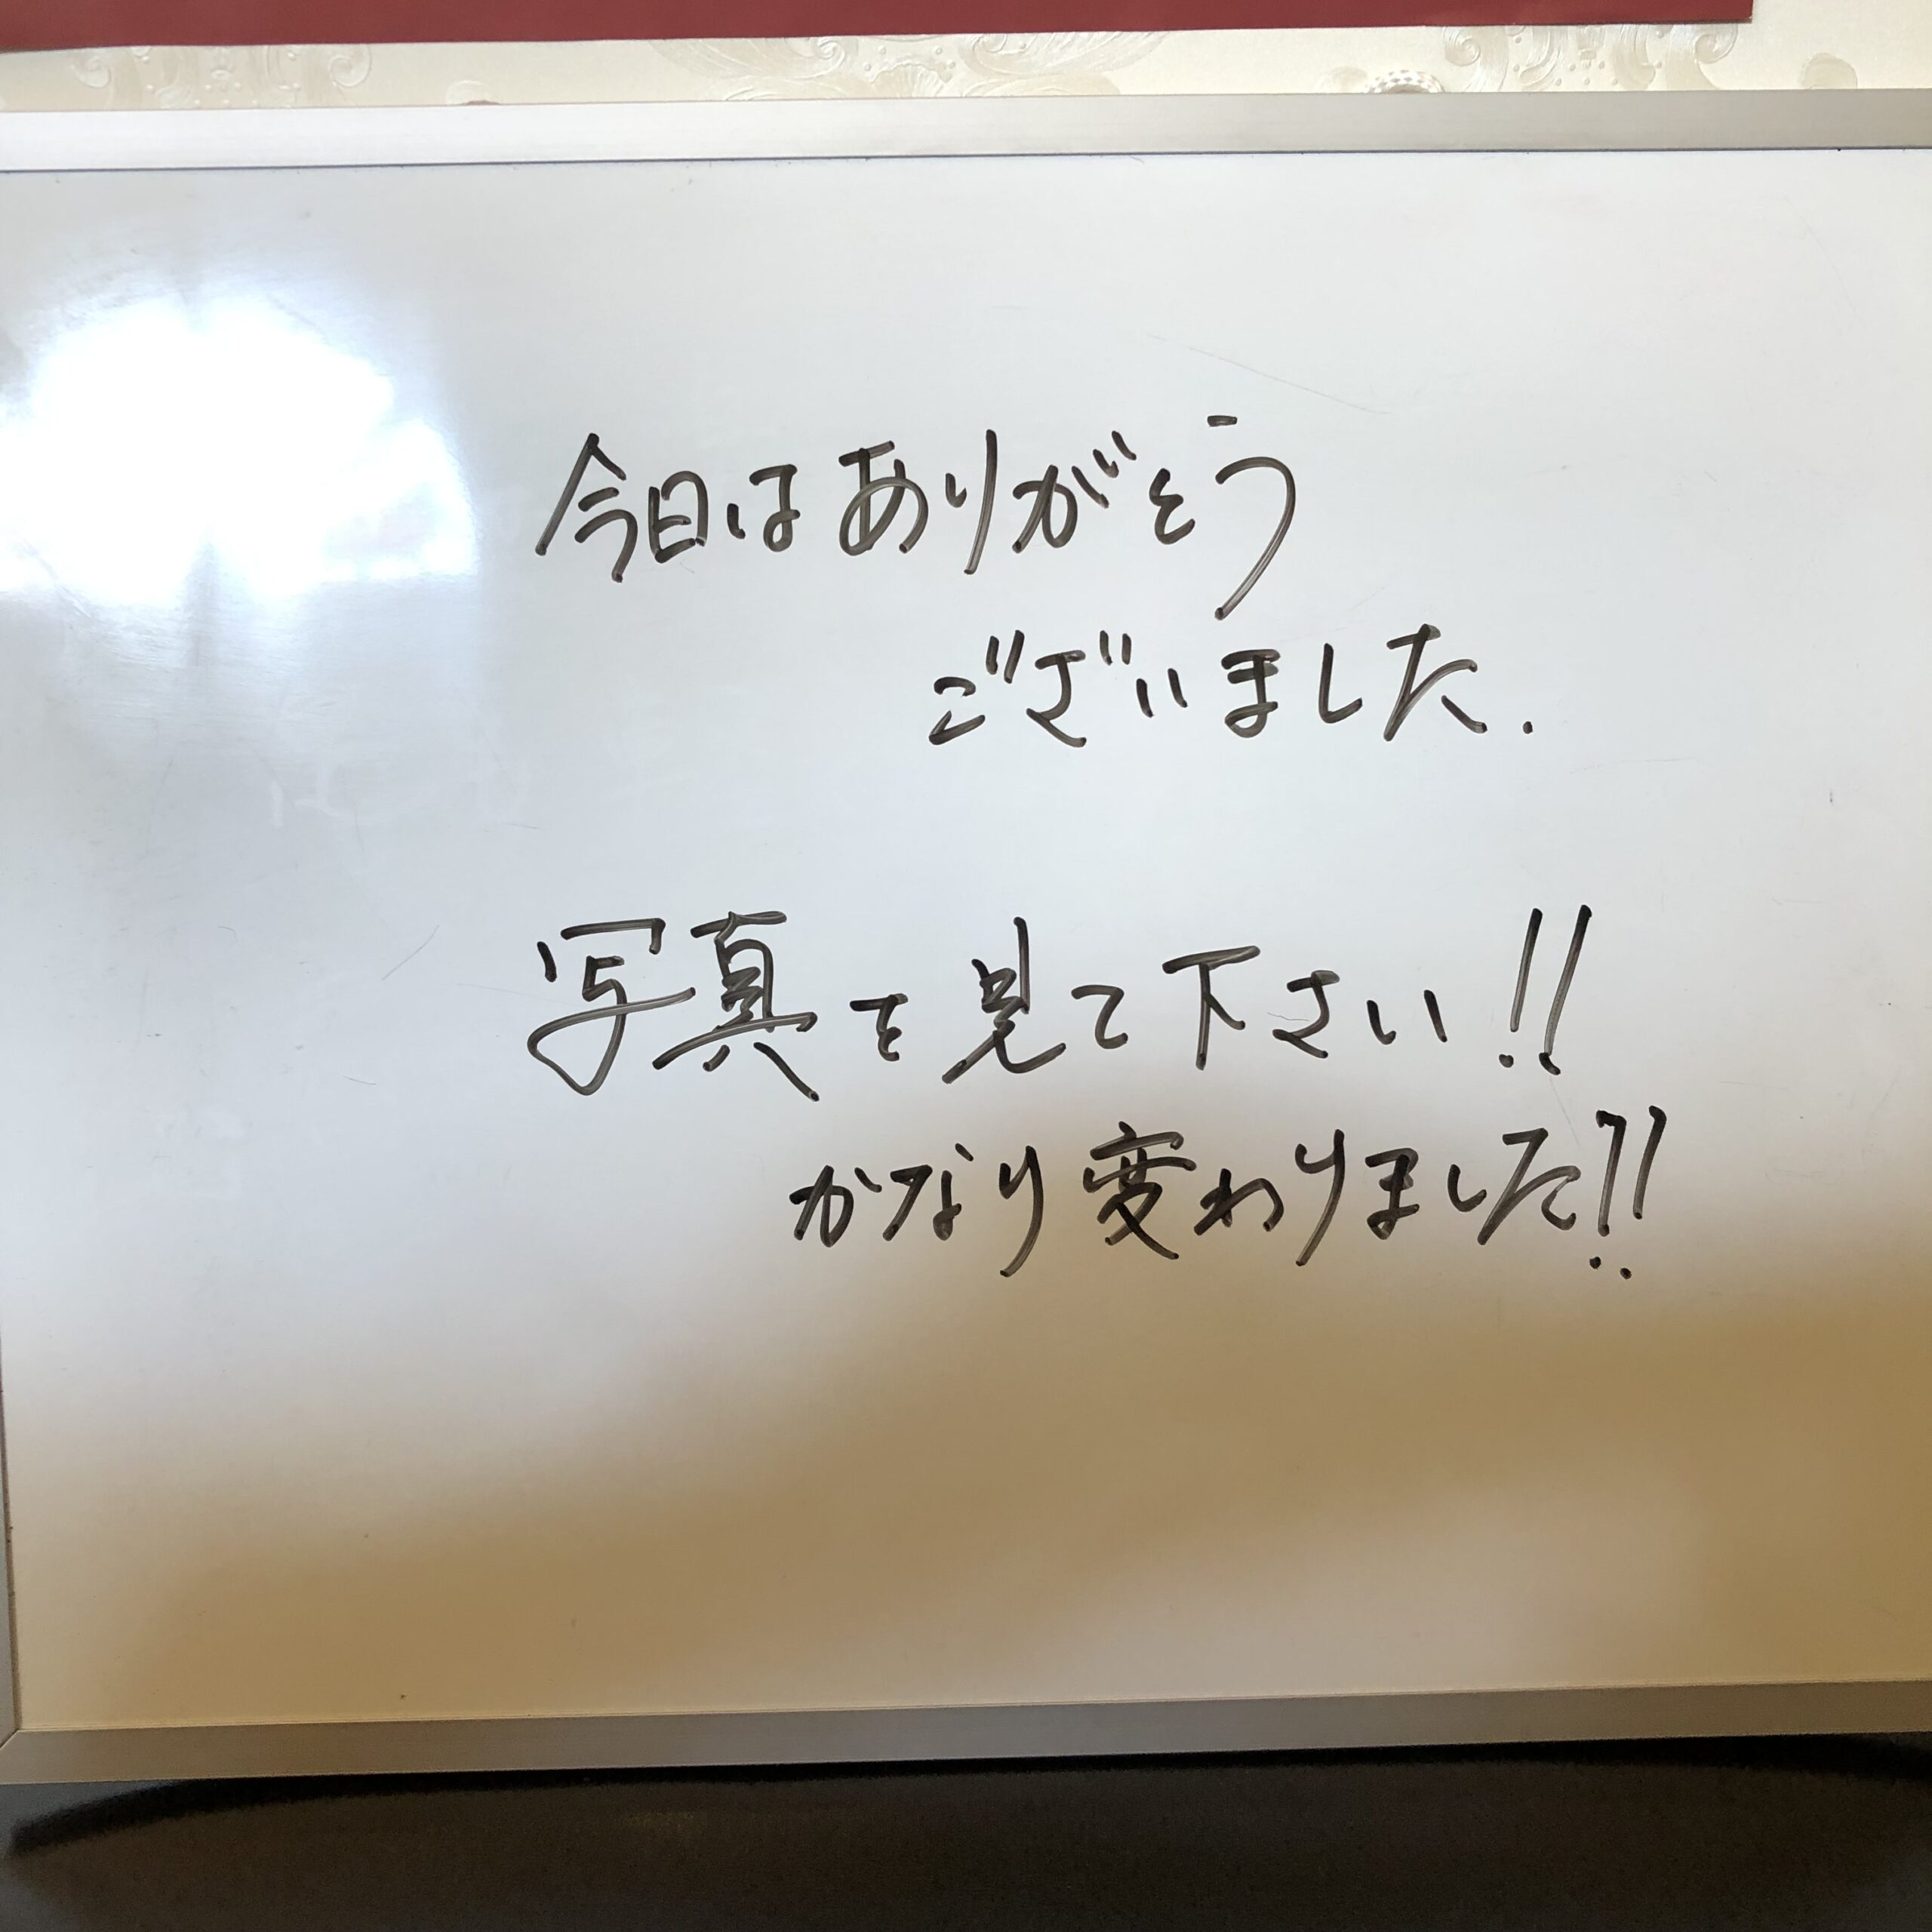 今日はありがとう
ございました.
写真を見て下さい!!
かなり変わりました!!